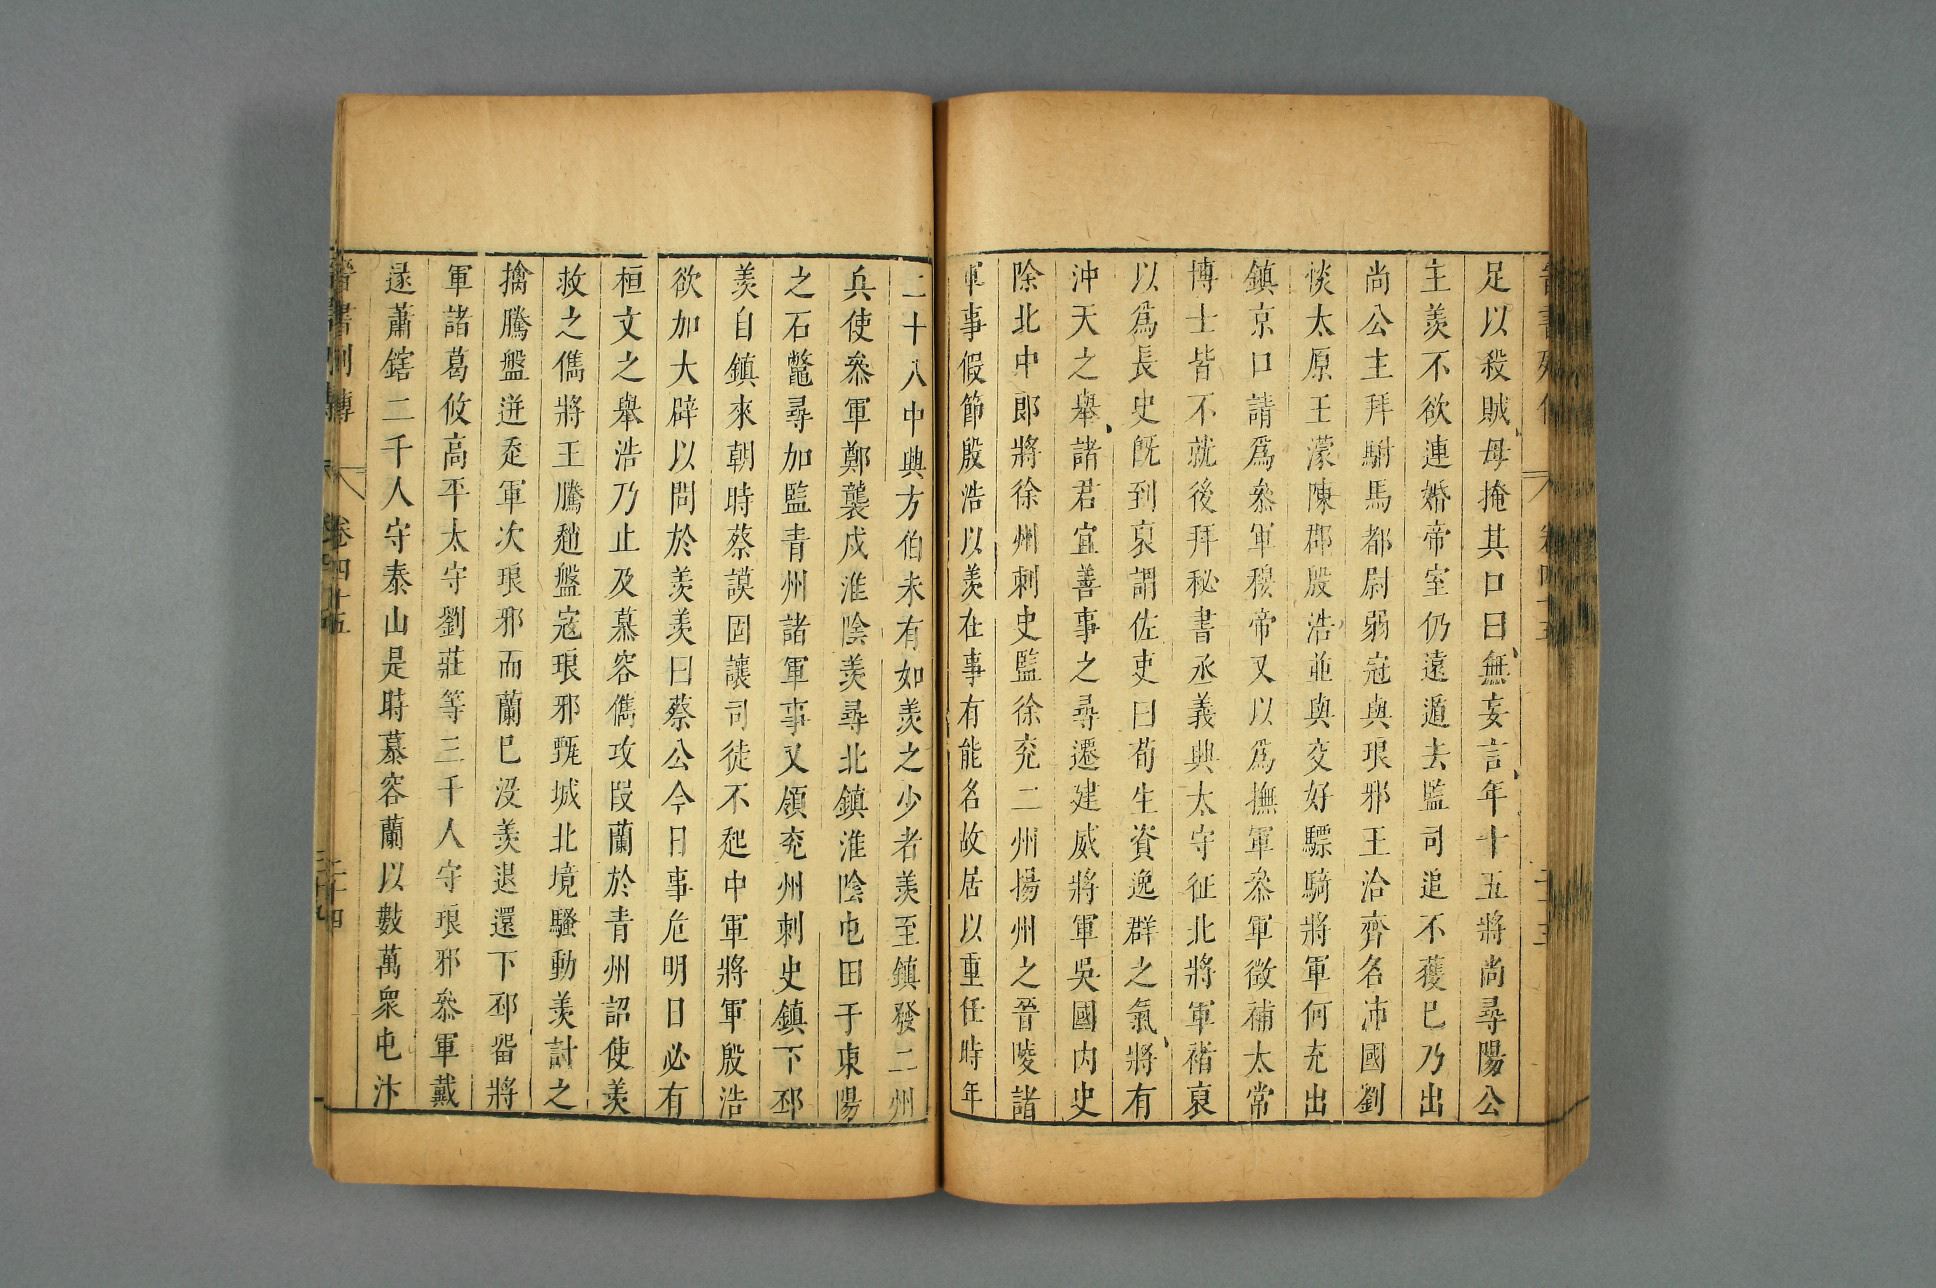 足以殺賊母掩其口曰無妄言年十五將尚尋陽公
主羨不欲連婚帝室仍遠遁去監司追不獲已乃出
尚公主拜駙馬都尉弱冠與琅邪王洽齊名沛國劉
惔太原王濛陳郡殷浩並與交好驃騎將軍何充出
鎮京口請爲參軍穆帝又以爲撫軍參軍徵補太常
博士皆不就後拜秘書丞義興太守征北將軍褚裒
以爲長史既到裒謂佐吏曰荀生資逸群之氣將有
沖天之舉諸君宜善事之尋遷建威將軍吳國內史
除北中郎將徐州刺史監徐兗二州揚州之晉陵諸
軍事假節殷浩以羨在事有能名故居以重任時年
二十八中興方伯未有如羨之少者羨至鎮發二州
兵使參軍鄭襲戍淮陰羨尋北鎮淮陰屯田于東陽
之石鼈尋加監青州諸軍事又領兗州刺史鎮下邳
羨自鎮來朝時蔡謨固讓司徒不起中軍將軍殷浩
欲加大辟以問於羨羨曰蔡公今日事危明日必有
桓文之舉浩乃止及慕容儁攻段蘭於青州詔使羨
救之儁將王騰趙盤寇琅邪甄城北境騷動羨討之
擒騰盤迸走軍次琅邪而蘭已沒羨退還下邳畱將
軍諸葛攸高平太守劉莊等三千人守琅邪參軍戴
逯蕭鎋二千人守泰山是時慕容蘭以數萬衆屯汴
晉書列傳 卷四十五